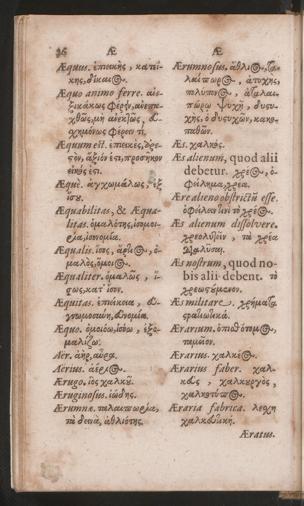 36 Æ Æ
Æquus. ἐπιεικὴς, κατεί-
κης, δίκαιος.
Æquo animo ferre. ἀνε-
ξικάκως φέρειν, ἀνεπα-
χθῶς, μὴ ἀνεκτῶς, εὐ-
σχημόνως φέρειν τι.
Æquum est. ἐπιεικὲς, πρέ-
πον, ἄξιόν ἐστι, προσῆκον
εἰκός ἐστι.
Æquè. ἐξ
ἴσου.
Æquabilitas, & Æqua-
litas. ὁμαλότης, ἰσομοι-
ρία, ἰσονομία.
Æqualis. ἴσος, ἄρτιος, ὁ-
μαλὸς, ὅμοιος.
Æqualiter. ὁμαλῶς, ἴ-
σως, κατ' ἴσον.
Æquitas. ἐπιείκεια, εὐ-
γνωμοσύνη, εὐνομία.
Æquo. ὁμοιόω, ἰσόω, ἐξο-
μαλίζω.
Aër. ἀὴρ, αὔρα.
Aërius. ἀέριος.
Ærugo. ἰὸς χαλκοῦ.
Æruginosus. ἰώδης.
Ærumnæ. ταλαιπωρία,
τὰ δεινὰ, ἀθλιότης.
Ærumnosus. ἄθλιος, τα-
λαίπωρος, ἀτυχὴς,
ἀταλαι-
πώρῳ ψυχῇ, δυστυ-
χὴς, ὁ δυστυχῶν, κακο-
παθῶν.
Æs. χαλκός.
Æs alienum, quod alii
debetur. χρέος, ὀ-
φείλημα, χρέα.
Ære alieno obstrictū esse.
ὀφείλειν τὸ χρέος.
Æs alienum dissolvere.
χρεολυτεῖν, τὰ χρέα
διαλύειν.
Æs nostrum, quod no-
bis alii debent. τὸ
χρεωστούμενον.
Æs militare. χρήματα
στρατιωτικά.
Ærarium. ὀπισθόδομος,
ταμεῖον.
Ærarius. χαλκεῖος.
Ærarius faber. χαλ-
κεὺς, χαλκουργὸς,
χαλκοτύπος.
Æraria fabrica. λέσχη
χαλκευτική.
Æratus.